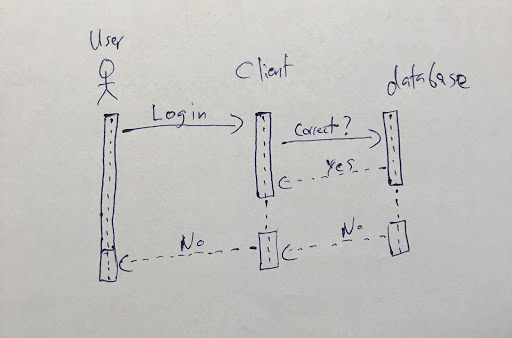 User
Client
database
Login
Correct?
yes
No
No